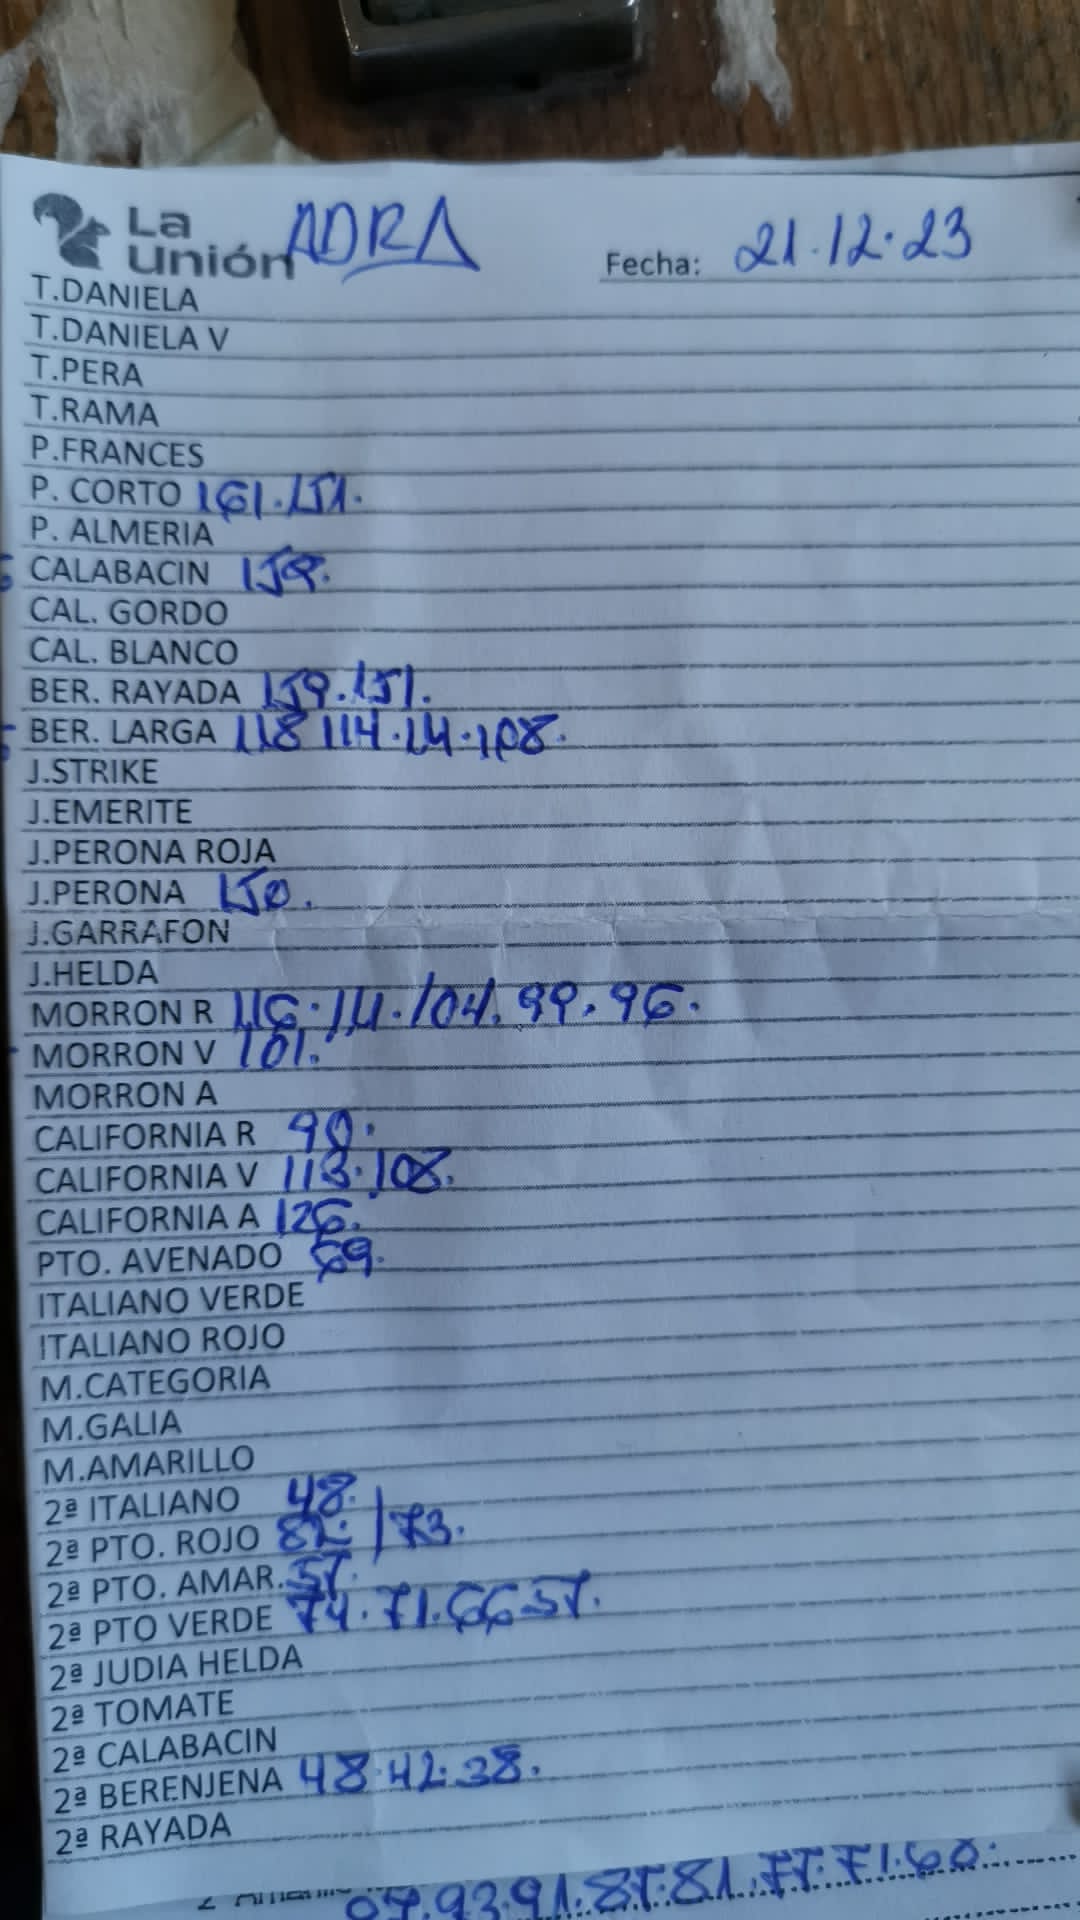 La Unión ADRA Fecha: 21.12.23
T.DANIELA
T.DANIELA V
T.PERA
T.RAMA
P.FRANCES
P. CORTO 161.151.
P. ALMERIA
CALABACIN 159.
CAL. GORDO
CAL. BLANCO
BER. RAYADA 159.151.
BER. LARGA 118 114.114.108.
J.STRIKE
J.EMERITE
J.PERONA ROJA
J.PERONA 150.
J.GARRAFON
J.HELDA
MORRON R 116.111.104.99.96.
MORRON V 101.
MORRON A
CALIFORNIA R 90.
CALIFORNIA V 113.108.
CALIFORNIA A 126.
PTO. AVENADO 69.
ITALIANO VERDE
ITALIANO ROJO
M.CATEGORIA
M.GALIA
M.AMARILLO
2ª ITALIANO 48.
2ª PTO. ROJO 82. / 73.
2ª PTO. AMAR. 57.
2ª PTO VERDE 74.71.66 57.
2ª JUDIA HELDA
2ª TOMATE
2ª CALABACIN
2ª BERENJENA 48.42.38.
2ª RAYADA
93.91.87.81.77.71.60.